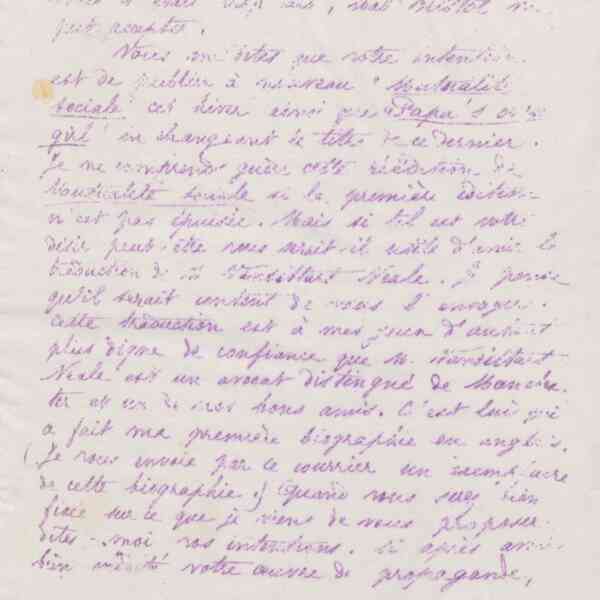 peut accepter.
Vous me dites que votre intention
est de publier à nouveau "Mutualité
sociale" cet hiver ainsi que "Papa's own
girl" en changeant le titre de ce dernier.
Je ne comprends guère cette réédition de
Mutualité sociale si la première édition
n'est pas épuisée. Mais si tel est votre
désir peut-être vous serait-il utile d'avoir la
traduction de M Vansittart Neale. Je pense
qu'il serait content de vous l'envoyer.
Cette traduction est à mes yeux d'autant
plus digne de confiance que M. Vansittart
Neale est un avocat distingué de Manches-
ter et un de mes bons amis. C'est lui qui
a fait ma première biographie en anglais.
(Je vous envoie par ce courrier un exemplaire
de cette biographie.) Quand vous serez bien
fixée sur ce que je viens de vous proposer
dites-moi vos intentions. Si après avoir
bien médité votre œuvre de propagande,